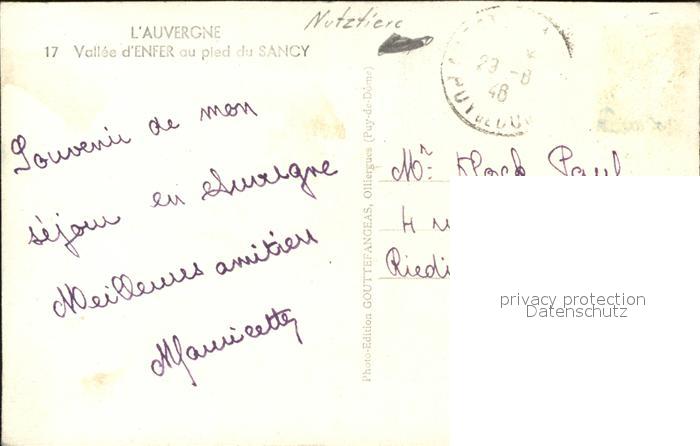 L'AUVERGNE
17 Vallée d'ENFER au pied du SANCY
Nutztiere
23 -8
48
PUY DE DOME
Souvenir de mon
séjour en Auvergne
Meilleures amitiés
Mauricette
Photo-Edition GOUTTEFANGEAS, Olliergues (Puy-de-Dôme)
Mr: Paul
4
Riedi
privacy protection
Datenschutz